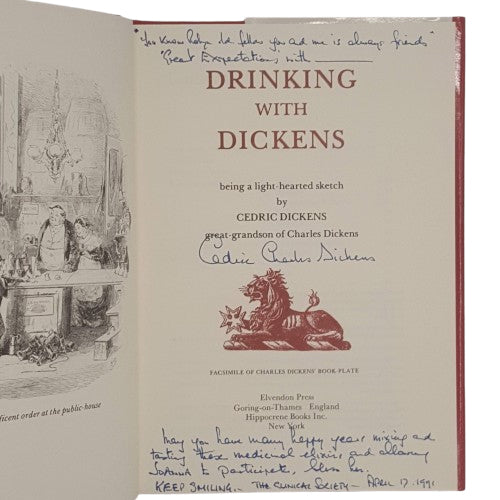 "You Know Robyn old fellow you and me is always friends"
"Great Expectations with
DRINKING
WITH
DICKENS
being a light-hearted sketch
by
CEDRIC DICKENS
great-grandson of Charles Dickens
Cedric Charles Dickens
FACSIMILE OF CHARLES DICKENS' BOOK PLATE
Elvendon Press
Goring-on-Thames England
Hippocrene Books Inc.
New York
May you have many happy years mixing and
tasting these medicinal elixirs and allowing
to participate, bless her.
KEEP SMILING - THE CLINICAL SOCIETY - APRIL 17. 1991
ficent order at the public-house